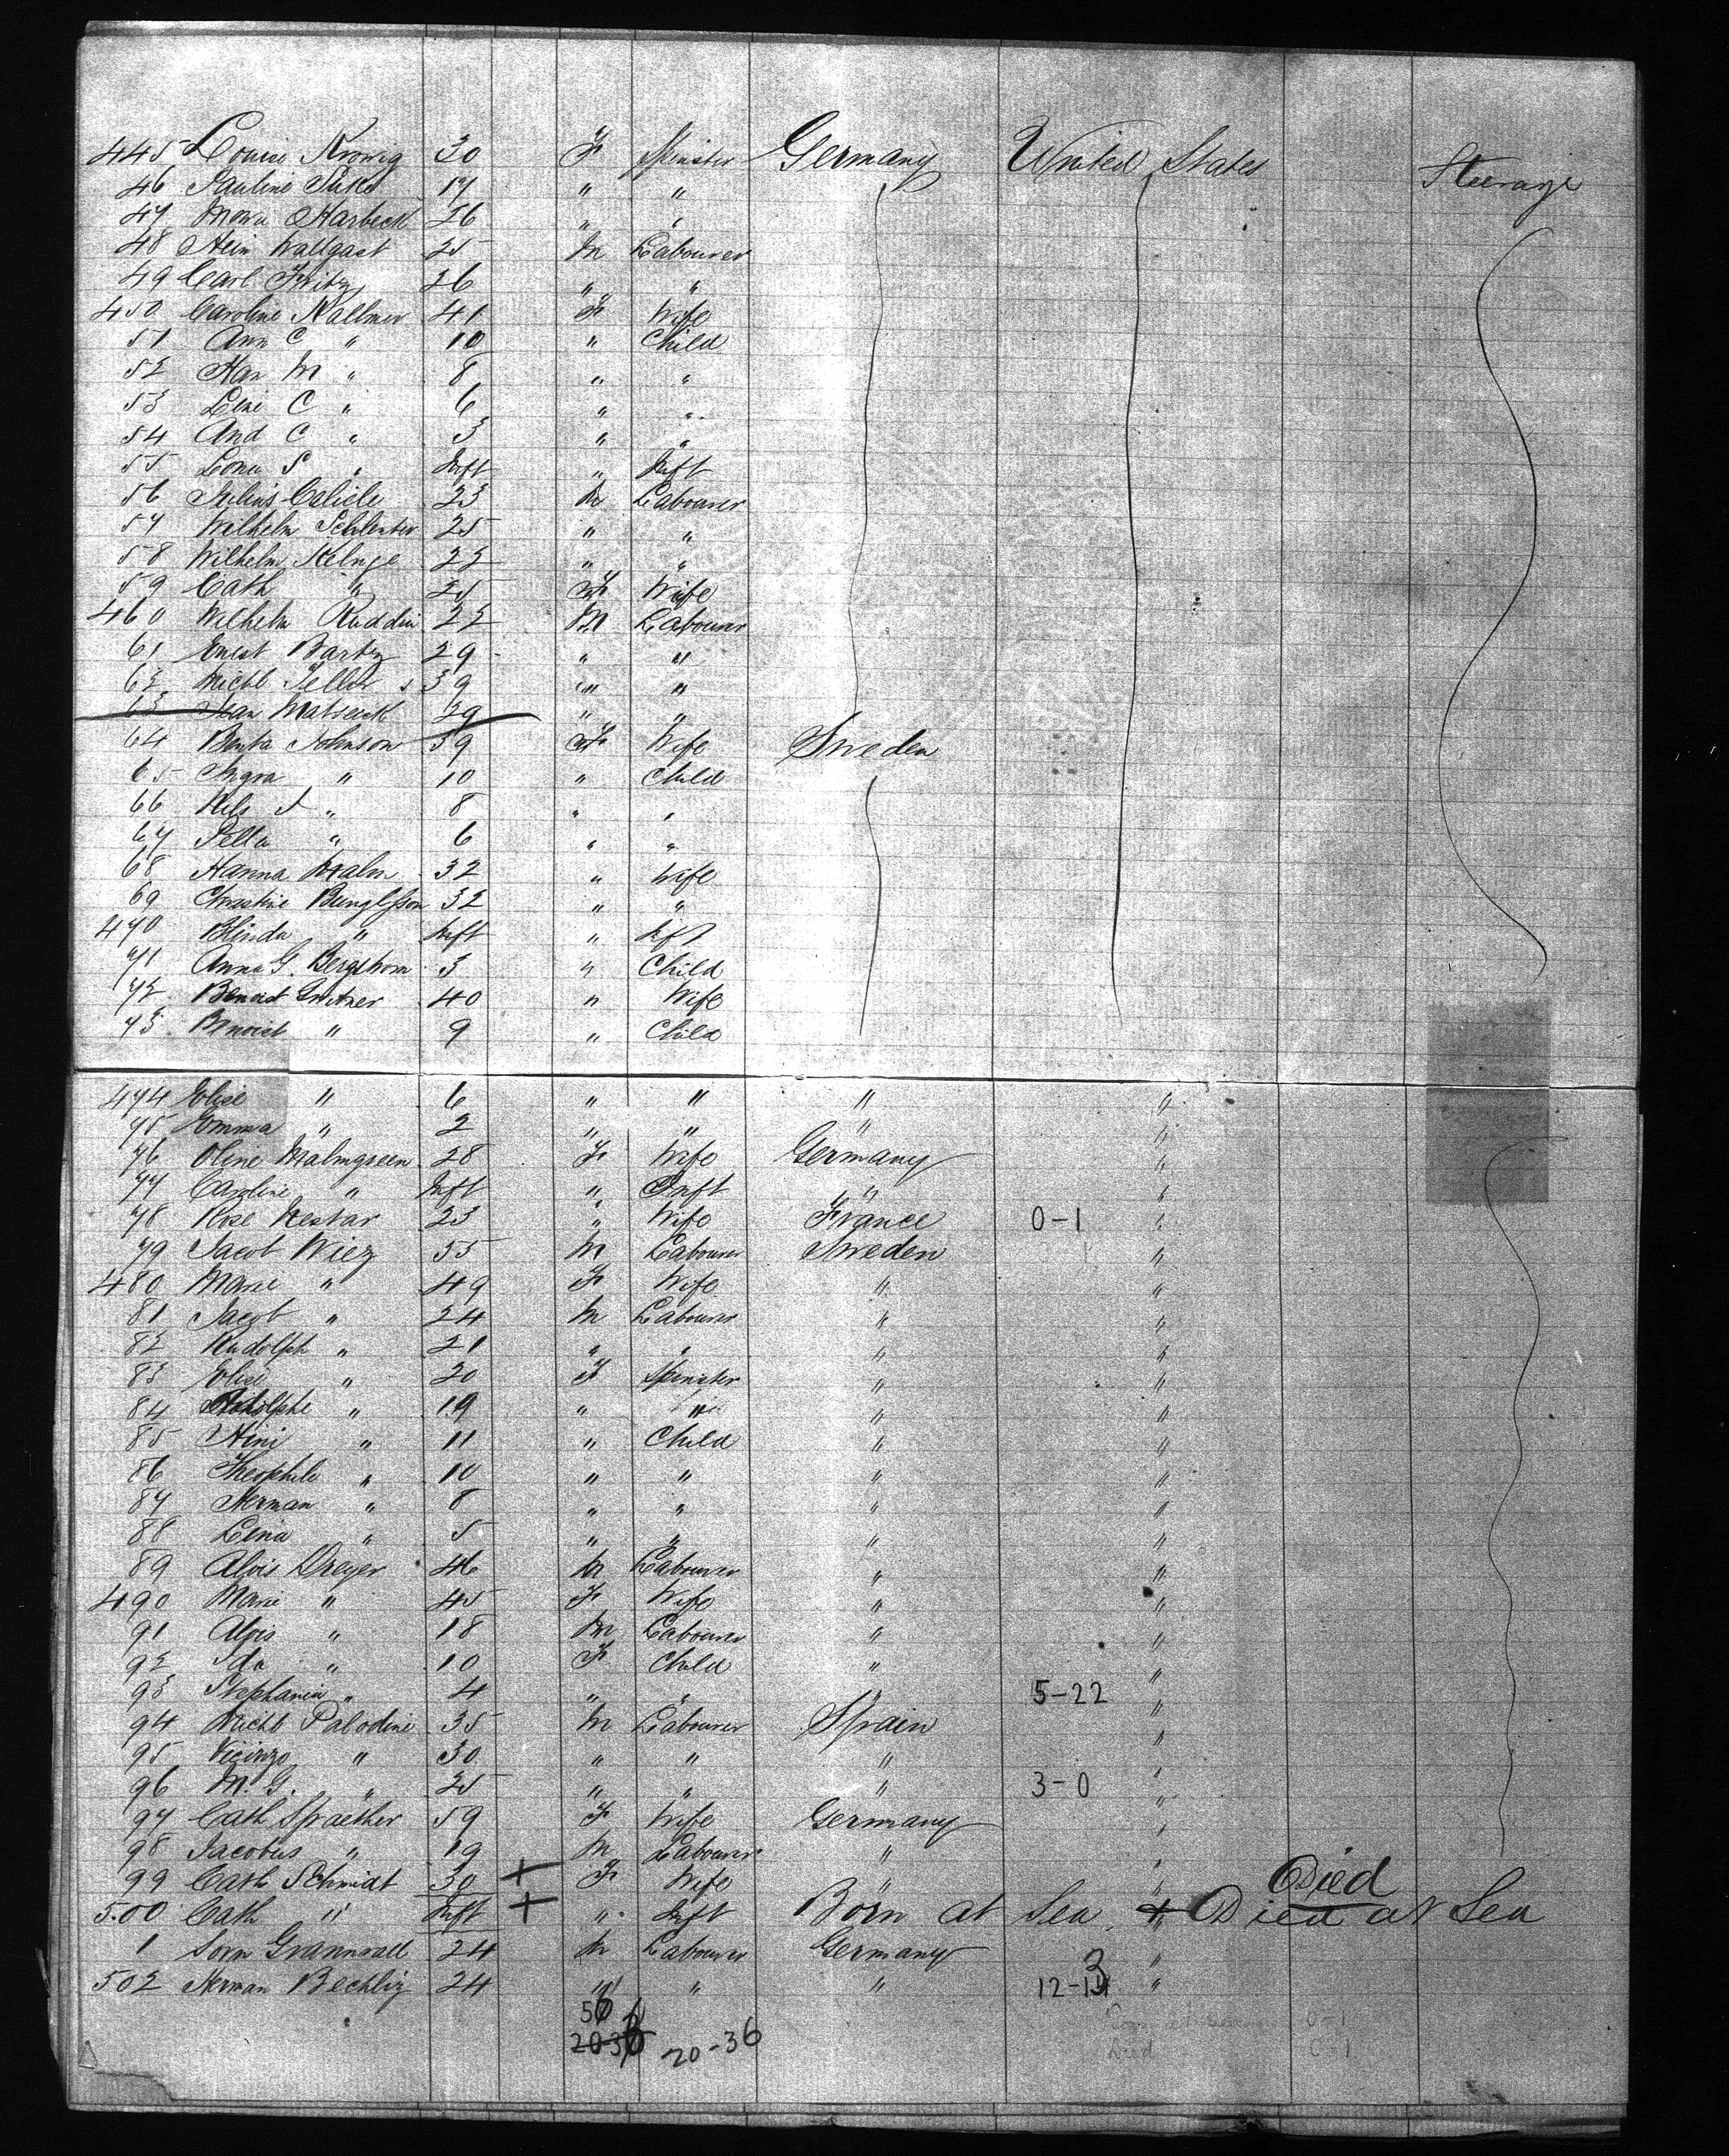 445 Louise Krowig 30 F Spinster Germany United States Steerage
46 Pauline 17 " "
47 Harbeck 26 " "
48 Hein Wallgast 25 M Labourer
49 Carl Fritz 26 " "
450 Caroline Kallmer 41 F Wife
51 Ann C " 10 " Child
52 Han M " 8 " "
53 Leni C " 6 " "
54 And C " 3 " "
55 S " Inft " Inft
56 Julius 23 M Labourer
57 Wilhelm Schlenter 25 " "
58 Wilhelm Kelnge 22 " "
59 Cath " 25 F Wife
460 Wilhelm Ruddin 22 M Labourer
61 Ernst Bartz 29 " "
62 Michl 39 " "
63 29 " "
64 Johnson 39 F Wife Sweden
65 Ingra " 10 " Child
66 Nils J " 8 " "
67 Pella " 6 " "
68 Hanna Malm 32 " Wife
69 Christine 32 " "
470 Blinda " Inft " Inft
71 Anna G. Bergstrom 3 " Child
72 Benoist 40 " Wife
73 Benoist " 9 " Child
474 Elise " 6 " " " "
75 Emma " 2 " " " "
76 Oline Malmgreen 28 F Wife Germany "
77 Caroline " Inft " Inft " "
78 Rose Nestar 23 " Wife France 0-1 "
79 Jacob Wiez 55 M Labourer Sweden "
480 Marie " 49 F Wife " "
81 Jacob " 24 M Labourer " "
82 Rudolph " 21 " " " "
83 Elise " 20 F Spinster " "
84 " 19 " " " "
85 Hini " 11 " Child " "
86 Theophile " 10 " " " "
87 Herman " 8 " " " "
88 Lena " 5 " " " "
89 Alois Dreyer 46 M Labourer " "
490 Marie " 45 F Wife " "
91 Alois " 18 M Labourer " "
92 Ida " 10 F Child " "
93 Stephania " 4 " " " 5-22 "
94 Michl Palodine 35 M Labourer Spain "
95 " 30 " " " "
96 M. G. " 25 " " " 3-0 "
97 Cath Spaether 59 F Wife Germany "
98 Jacobus " 19 M Labourer " "
99 Cath Schmidt 30 + F Wife " " Died
500 Cath " Inft + " Inft Born at Sea + Died at Sea
1 Sorn 24 M Labourer Germany "
502 Herman Bechliz 24 " " " 12- "
56
20-36 20-36
0-1
Died 0-1